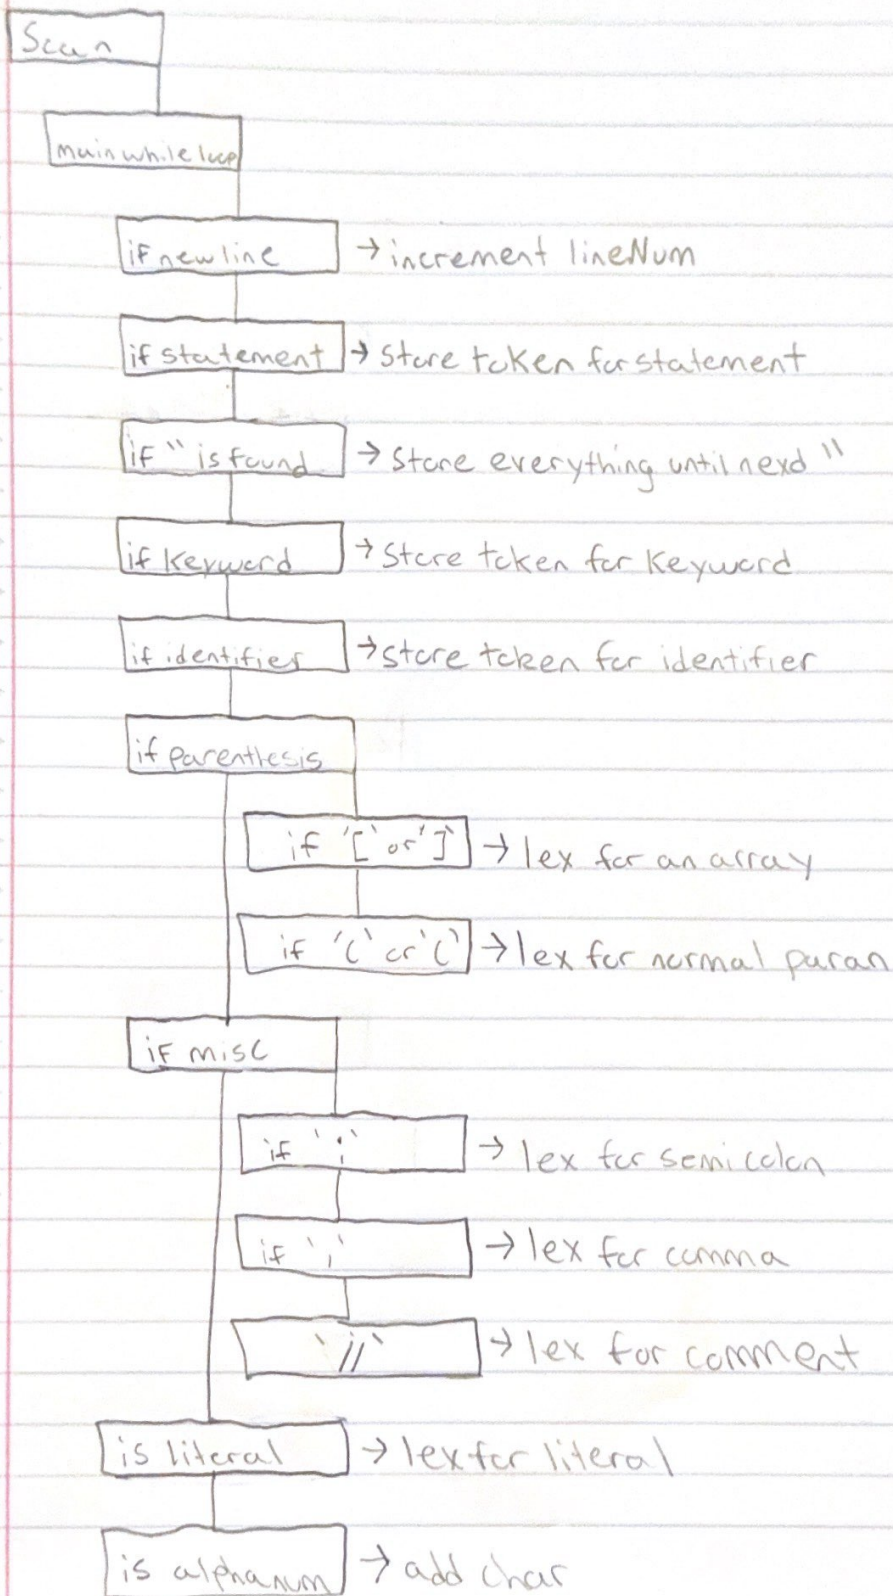 Scan
main while loop
if newline → increment lineNum
if statement → Store token for statement
if " is found → Store everything until nexd "
if Keyword → Store token for Keyword
if identifier → Store token for identifier
if parenthesis
if '[' or ']' → lex for an array
if '(' or '(' → lex for normal paran
if misc
if ';' → lex for semicolon
if ',' → lex for comma
'//' → lex for comment
is literal → lex for literal
is alphanum → add char